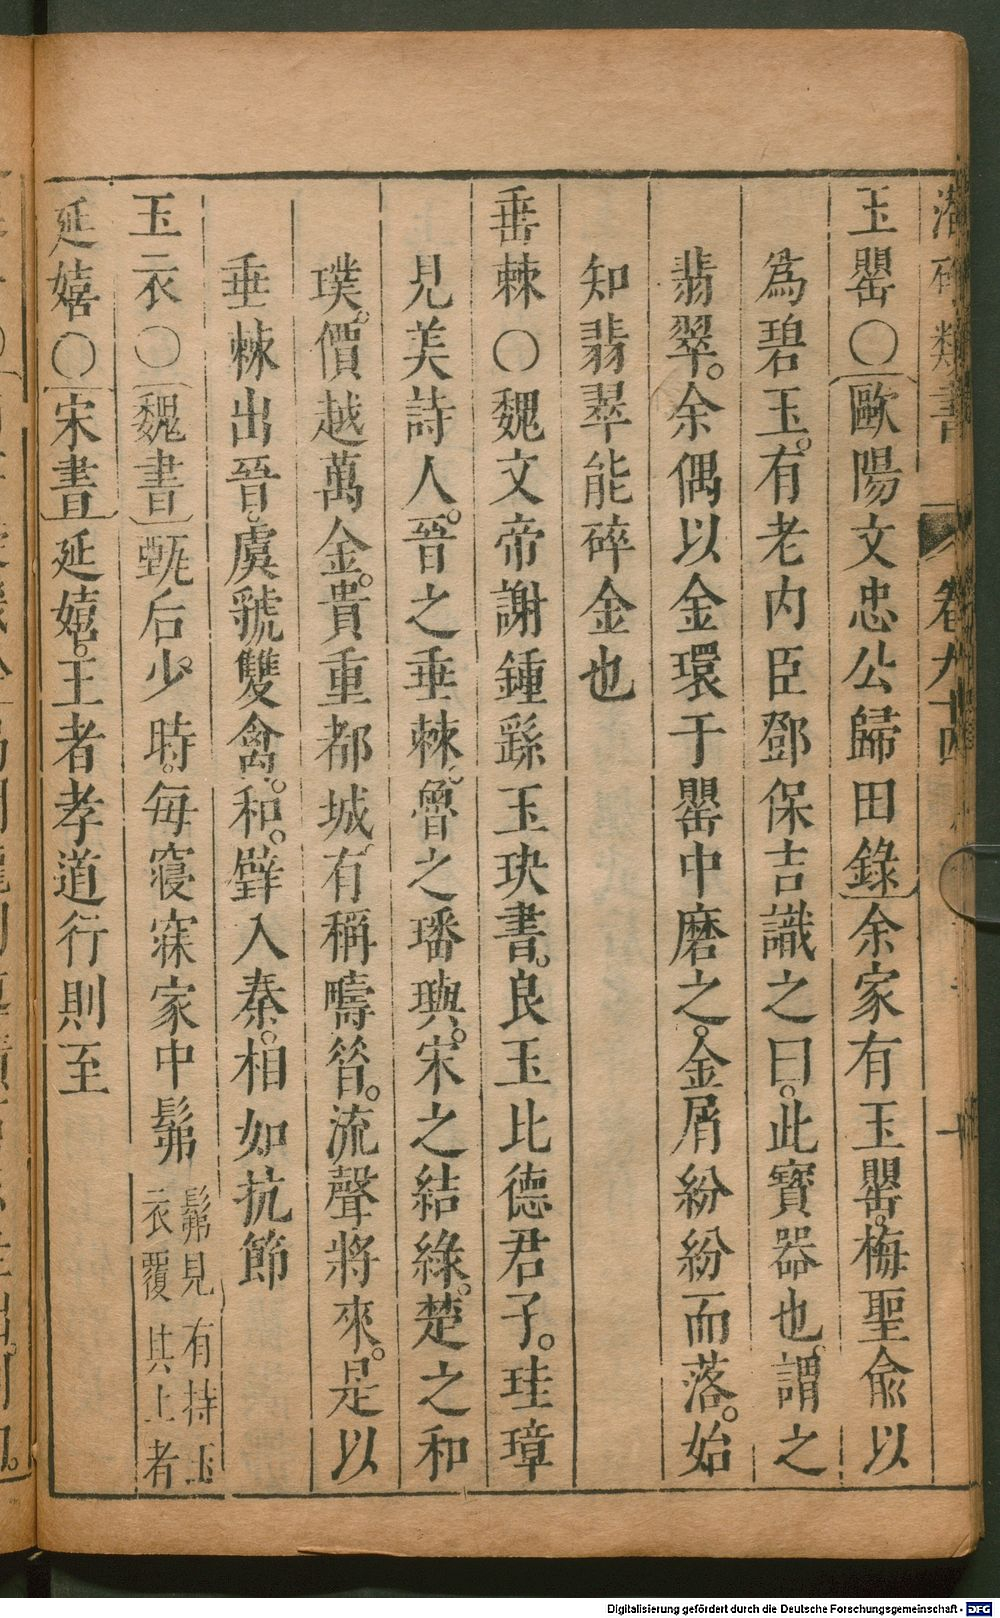 潛確類書　卷九十四
玉罌〇〔歐陽文忠公歸田錄〕余家有玉罌。梅聖俞以
爲碧玉。有老内臣鄧保吉識之曰。此寳器也。謂之
翡翠。余偶以金環于罌中磨之。金屑紛紛而落。始
知翡翠能碎金也
垂棘〇魏文帝謝鍾繇玉玦書。良玉比德君子。珪璋
見美詩人。晉之垂棘。魯之璠璵。宋之結綠。楚之和
璞。價越萬金。貴重都城。有稱疇昔。流聲將來。是以
垂棘出晉。虞虢雙禽。和。璧入秦。相如抗節
玉衣〇〔魏書〕甄后少時。每寢寐家中髴
髴見有持玉
衣覆其上者
延嬉〇〔宋書〕延嬉。王者孝道行則至
Digitalisierung gefördert durch die Deutsche Forschungsgemeinschaft - DFG